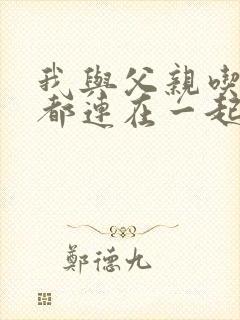 我與父親喫
都連在一起
鄭德九